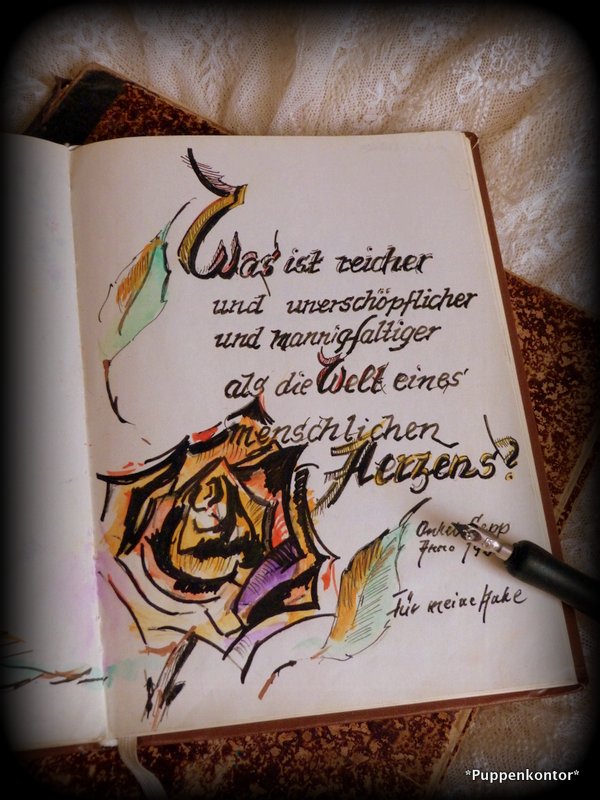 Was ist reicher
und unerschöpflicher
und mannigfaltiger
als die Welt eines
menschlichen
Herzens?
Onkel Sepp
Anno
Für meine
*Puppenkontor*